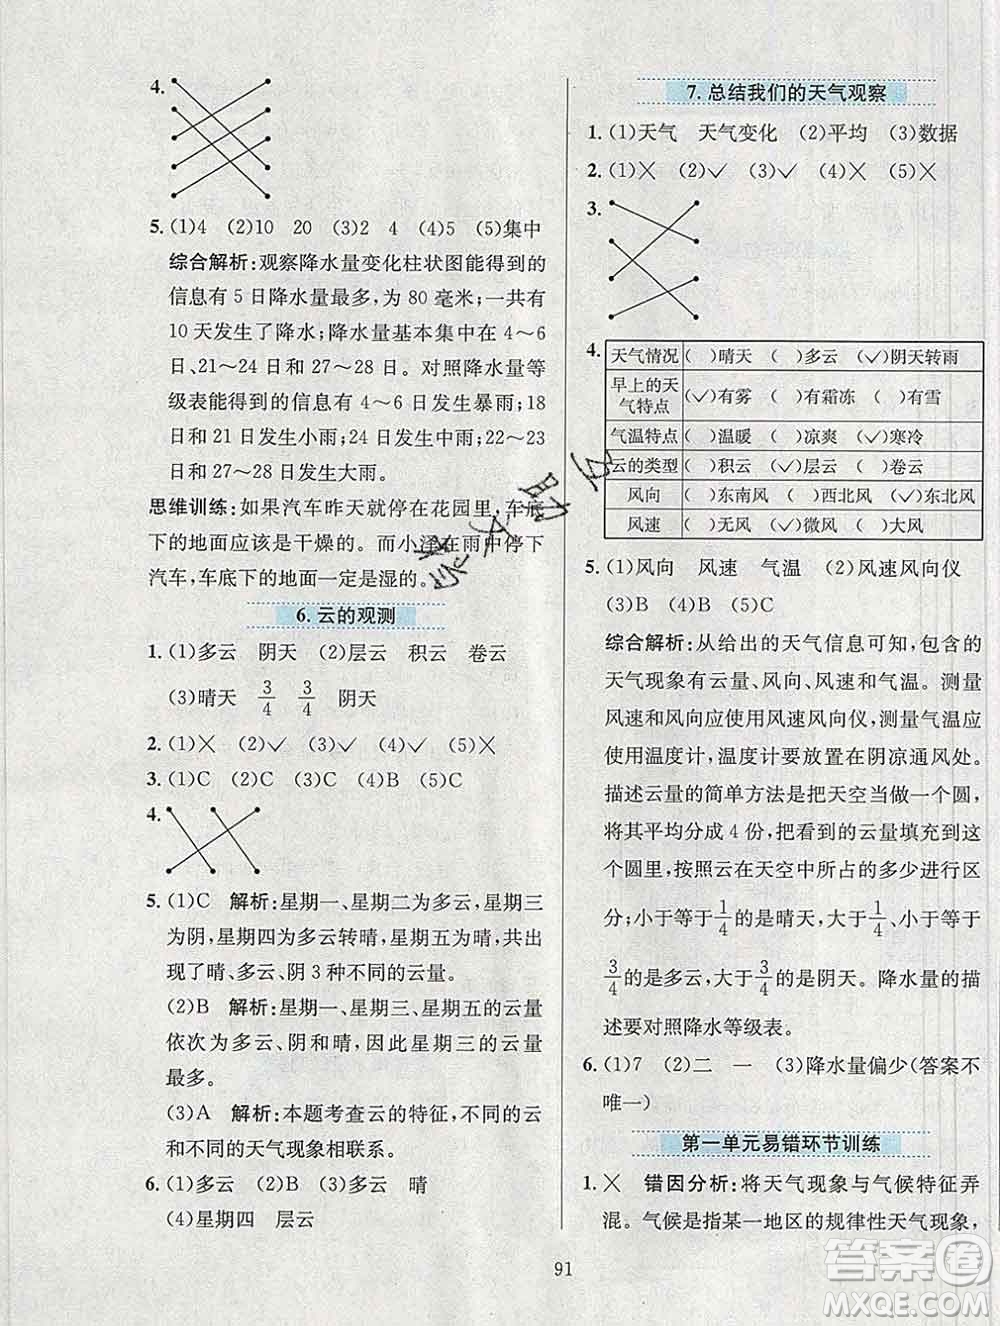 4.
5. (1)4 (2)10 20 (3)2 4 (4)5 (5)集中
综合解析:观察降水量变化柱状图能得到的
信息有 5 日降水量最多,为 80 毫米;一共有
10 天发生了降水;降水量基本集中在 4～6
日、21～24 日和 27～28 日。对照降水量等
级表能得到的信息有 4～6 日发生暴雨;18
日和 21 日发生小雨;4 日发生中雨;22～23
日和 27～28 日发生大雨。
思维训练:如果汽车昨天就停在花园里,车底
下的地面应该是干燥的。而小泽在雨中停下
汽车,车底下的地面一定是湿的。
6. 云的观测
1. (1)多云 阴天 (2)层云 积云 卷云
(3)晴天 3/4 3/4 阴天
2. (1)✕ (2)✓ (3)✓ (4)✓ (5)✕
3. (1)C (2)C (3)B (4)B (5)C
4.
5. (1)C 解析:星期一、星期二为多云,星期三
为阴,星期四为多云转晴,星期五为晴,共出
现了晴、多云、阴 3 种不同的云量。
(2)B 解析:星期一、星期三、星期五的云量
依次为多云、阴和晴,因此星期三的云量
最多。
(3)A 解析:本题考查云的特征,不同的云
和不同的天气现象相联系。
6. (1)多云 (2)B (3)多云 晴
(4)星期四 层云
7. 总结我们的天气观察
1. (1)天气 天气变化 (2)平均 (3)数据
2. (1)✕ (2)✓ (3)✓ (4)✕ (5)✕
3.
4.
天气情况 ( )晴天 ( )多云 (✓)阴天转雨
早上的天气特点 (✓)有雾 ( )有霜冻 ( )有雪
气温特点 ( )温暖 ( )凉爽 (✓)寒冷
云的类型 ( )积云 (✓)层云 ( )卷云
风向 ( )东南风 ( )西北风 (✓)东北风
风速 ( )无风 (✓)微风 ( )大风
5. (1)风向 风速 气温 (2)风速风向仪
(3)B (4)B (5)C
综合解析:从给出的天气信息可知,包含的
天气现象有云量、风向、风速和气温。测量
风速和风向应使用风速风向仪,测量气温应
使用温度计,温度计要放置在阴凉通风处。
描述云量的简单方法是把天空当做一个圆,
将其平均分成 4 份,把看到的云量填充到这
个圆里,按照云在天空中所占的多少进行区
分;小于等于1/4的是晴天,大于1/4、小于等于
3/4的是多云,大于3/4的是阴天。降水量的描
述要对照降水等级表。
6. (1)7 (2)二 一 (3)降水量偏少(答案不
唯一)
第一单元易错环节训练
1. ✕ 错因分析:将天气现象与气候特征弄
混。气候是指某一地区的规律性天气现象,
91
作业精灵
答案圈
MXQE.COM